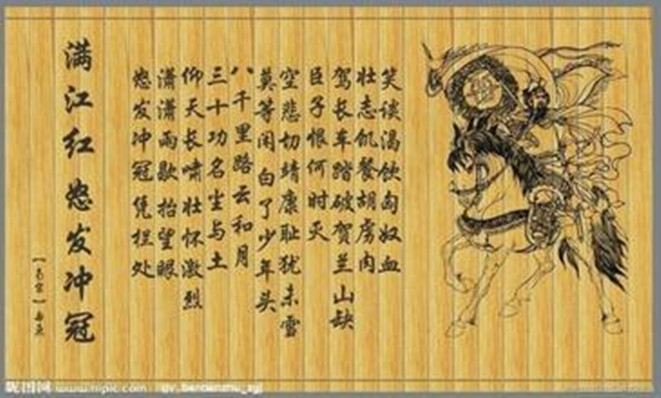 满江红 怒发冲冠
怒发冲冠凭栏处
潇潇雨歇抬望眼
仰天长啸壮怀激烈
三十功名尘与土
八千里路云和月
莫等闲 白了少年头
空悲切靖康耻犹未雪
臣子恨何时灭
驾长车踏破贺兰山缺
壮志饥餐胡虏肉
笑谈渴饮匈奴血
昵图网 www.nipic.com